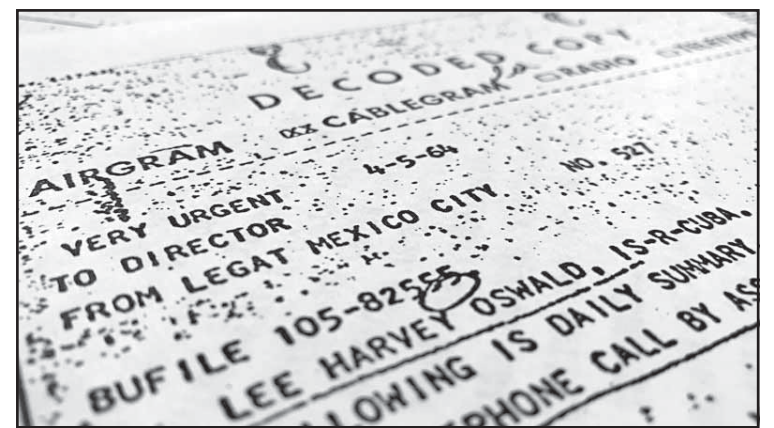 DECODED COPY
AIRGRAM ☒ CABLEGRAM ☐ RADIO ☐ TELETYPE
VERY URGENT 4-5-64 NO. 527
TO DIRECTOR
FROM LEGAT MEXICO CITY
BUFILE 105-82555
LEE HARVEY OSWALD, IS-R-CUBA.
LLOWING IS DAILY SUMMARY
EPHONE CALL BY ASS